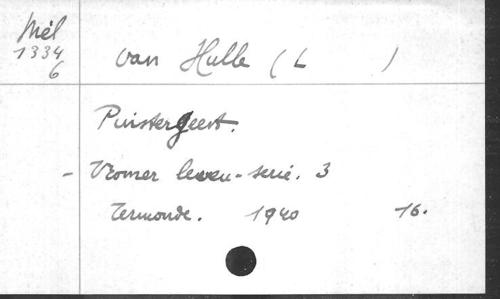 Mél
1334
6
van Hulle (L )
Puistergeest.
- Vromer leven-serie. 3
Termonde. 1940 16.